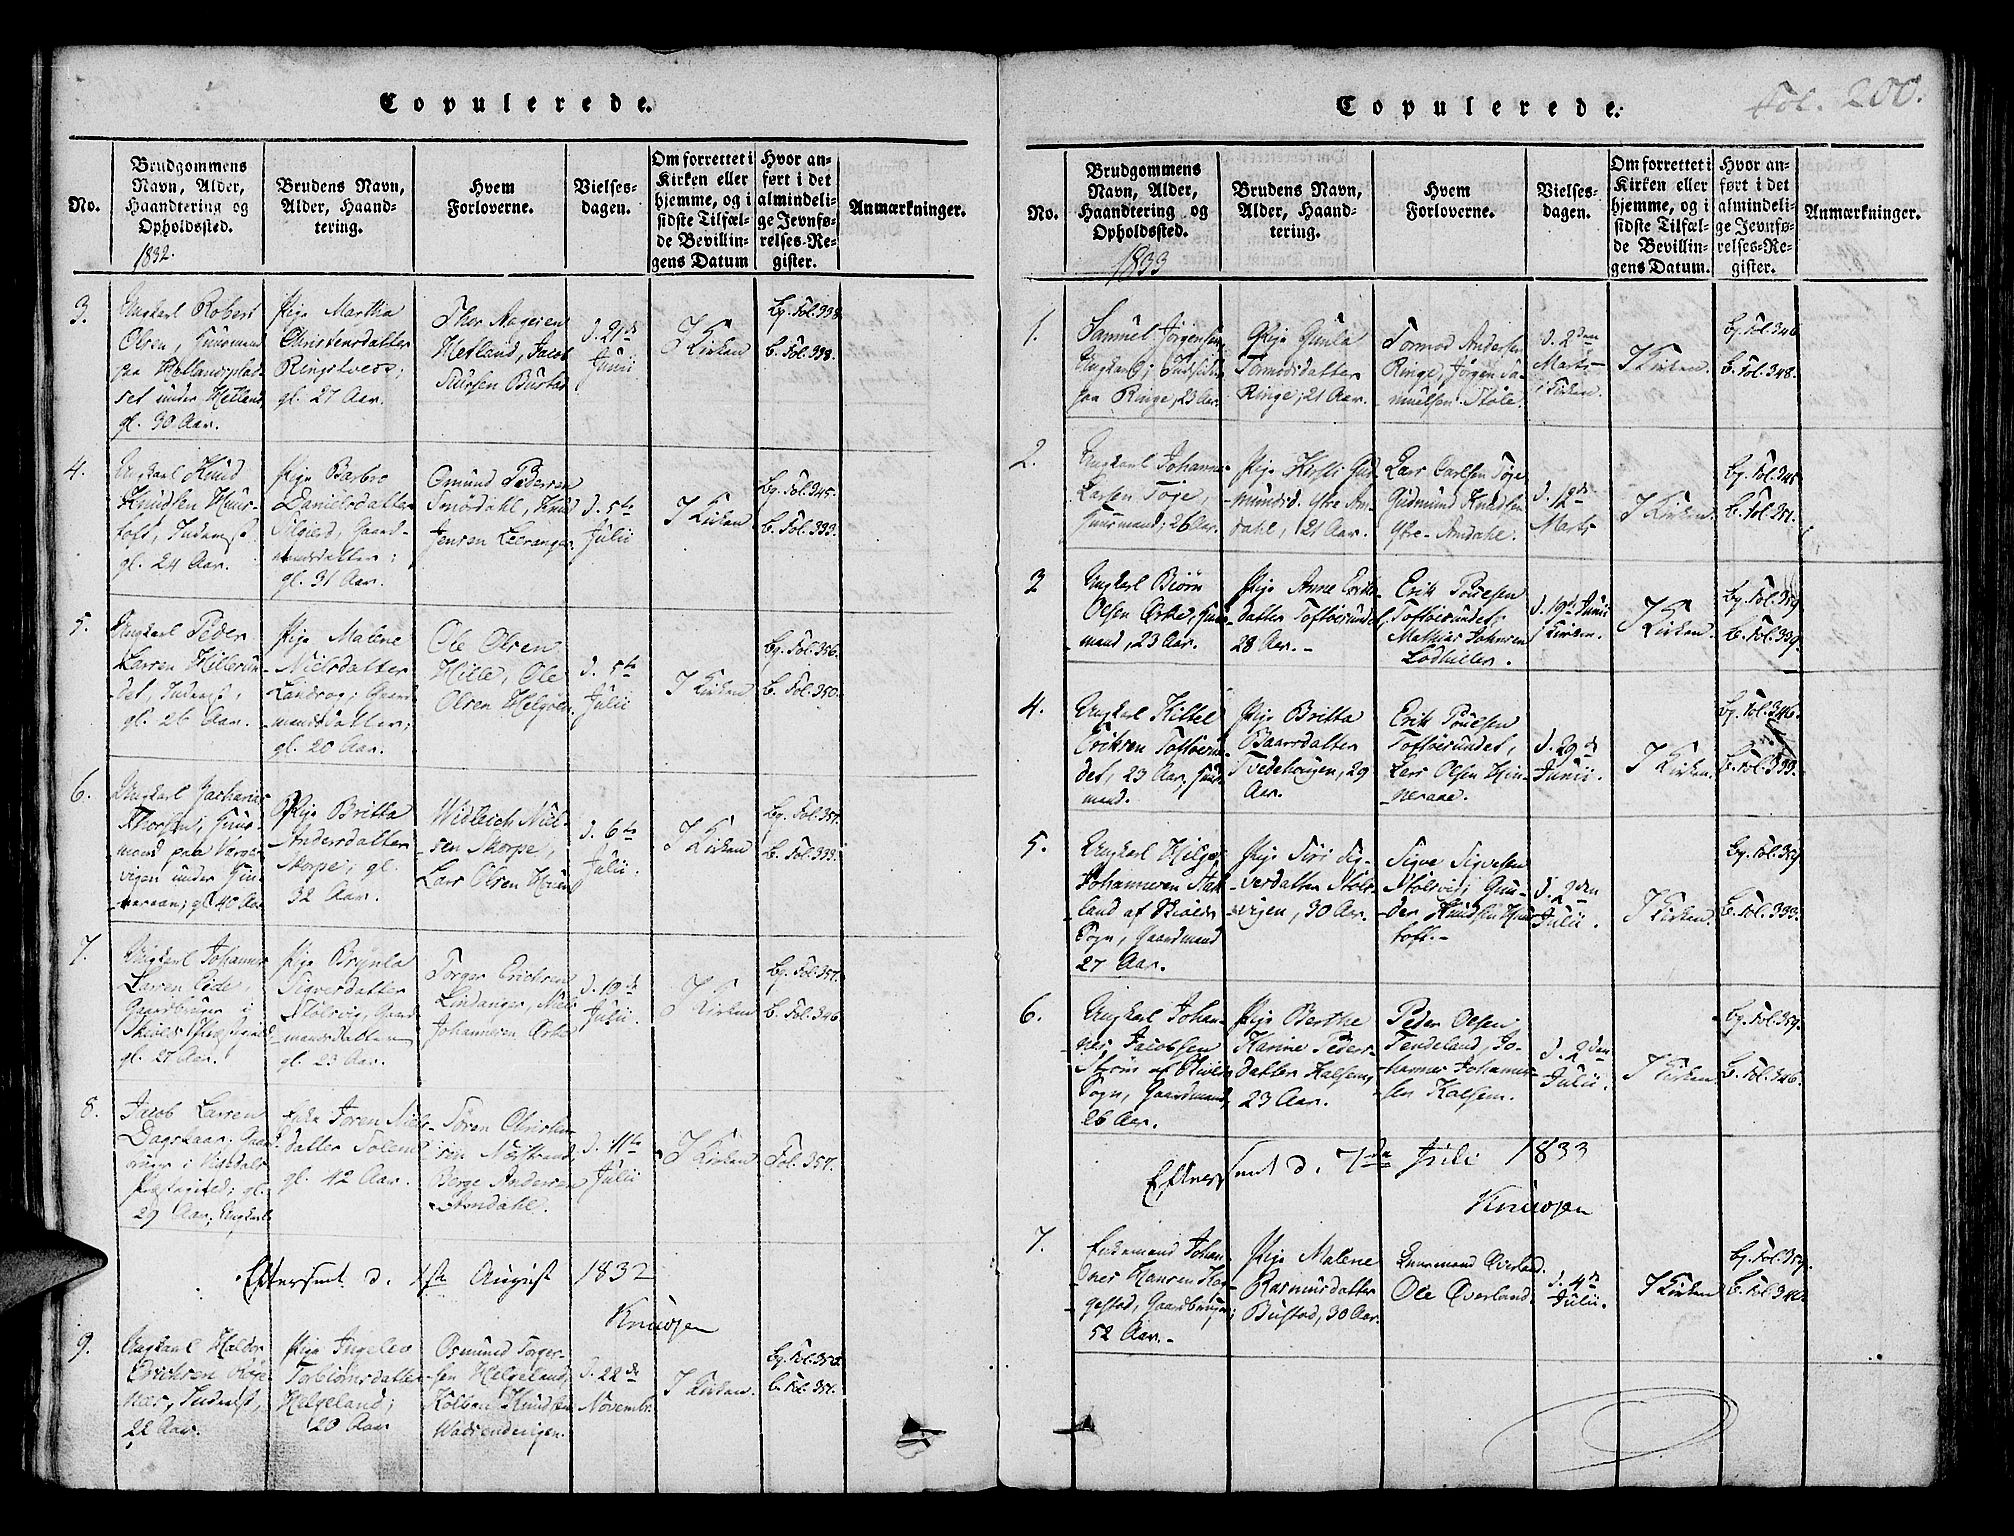 Copulerede.
No.
Brudgommens
Navn, Alder,
Haandtering og
Opholdssted.
1832.
Brudens Navn,
Alder, Haand-
tering.
Hvem
Forloverne.
Vielses-
dagen.
Om forrettet i
Kirken eller
hjemme, og i
sidste Tilfæl-
de Bevillin-
gens Datum
Hvor an-
ført i det
almindeli-
ge Jevnfø-
relses-Re-
gister.
Anmærkninger.
3.
Ungkarl Robert
Olsen, Huusmand
paa
set under Hetland,
gl. 30 Aar.
Pige Martha
Christensdatter
gl. 27 Aar.
Thor Aageien
Hetland, Jacob
Bustad
d. 21de
Junii
I Kirken
Bg. Fol. 338.
B. Fol. 338.
4.
Ungkarl Knud
Knudsen
gl. 24 Aar.
Pige Barbro
Danielsdatter
Gaard-
mandsdatter;
gl. 31 Aar.
Omund Pedersen
Knud
Jensen Leeranger
d. 5te
Julii
I Kirken
Bg. Fol. 345.
B. Fol. 333.
5.
Ungkarl Peder
Larsen Hillesun-
det, Inderst,
gl. 26 Aar.
Pige Malene
Nielsdatter
Landrog; Gaard-
mandsdatter;
gl. 20 Aar.
Ole Olsen
Hille, Ole
Olsen Helgøen
d. 5te
Julii
I Kirken
Bg. Fol. 356.
B. Fol. 350.
6.
Ungkarl Zacharias
Thorsen, Huus-
mand paa
vigen under Hin-
neraae; gl. 40 Aar.
Pige Britta
Andersdatter
Skorpe, gl.
32 Aar.
Widleich Niel-
sen Skorpe,
Lars Olsen
d. 6te
Julii
I Kirken
Bg. Fol. 357.
B. Fol. 333.
7.
Ungkarl Johannes
Larsen Eide,
Gaardbruger i
gl. 27 Aar.
Pige Brynla
Sigversdatter
Stolsvig, Gaard
mandsdatter
gl. 23 Aar.
Torger Erichsen
Lindanger, Niels
Johannesen
d. 19de
Julii
I Kirken
Bg. Fol. 357.
B. Fol. 346.
8.
Jacob Larsen
Dagslaar, Gaard
bruger i Vigedals
Præstegield; gl.
29 Aar; Ungkarl
Enke Søren Niels-
datter Solem
gl. 42 Aar.
Søren Christen
sen Næstrand,
Berge Andersen
Amdahl.
d. 11te
Julii
I Kirken
Fol. 357.
Efterseet d. 1ste August 1832
Knudsen
9.
Ungkarl Haldor
Erichsen
næs, Inderst,
22 Aar.
Pige Ingeleo
Torbiørnsdatter
Helgeland;
20 Aar
Osmund Torger-
sen Helgeland,
Kolben Knudsen
d. 22de
Novembr.
I Kirken.
Bg. Fol. 352.
B. Fol. 351.
Copulerede.
Fol. 200.
No.
Brudgommens
Navn, Alder,
Haandtering og
Opholdssted.
1833
Brudens Navn,
Alder, Haand-
tering.
Hvem
Forloverne.
Vielses-
dagen.
Om forrettet i
Kirken eller
hjemme, og i
sidste Tilfæl-
de Bevillin-
gens Datum.
Hvor an-
ført i det
almindeli-
ge Jevnfø-
relses-Re-
gister.
Anmærkninger.
1.
Samuel Jørgensen
Ungkarl; Indsidder
paa Ringe, 23 Aar.
Pige Gunla
Tormodsdatter
Ringe; 21 Aar.
Tormod Andersen
Ringe, Jørgen Sa-
muelsen Støle.
d. 2den
Marts
i Kirken.
I Kirken.
Bg. Fol. 346
B. Fol. 348.
2.
Ungkarl Johannes
Larsen Tøge,
Huusmand, 26 Aar.
Pige Kirsti Gud-
mundsd. Ytre Am-
dahl, 21 Aar.
Lars Carlsen Tøge
Gudmund Knudsen
Ytre-Amdahl.
d. 12de
Marts
I Kirken.
Bg. Fol. 345
B. Fol. 351.
3
Ungkarl Biørn
Olsen Hus-
mand, 23 Aar.
Pige Anne Eriks-
datter Toftøesundet,
28 Aar.
Erik Poulsen
Toftøesundet,
Mathias Johnsen
Lodhiller.
d. 19de Junii
i Kirken.
I
Kirken.
Bg. Fol. 359
B. Fol. 339.
4.
Ungkarl Kittel
Eriksen Toftøesun-
det, 23 Aar, Huus-
mand.
Pige Britta
Baarsdatter
Tvedehougen, 29
Aar.
Erik Poulsen
Toftøesundet,
Lars Olsen Hin-
neraae.
d. 29de
Junii.
I Kirken.
Bg. Fol. 346.
B. Fol. 333.
5.
Ungkarl Helge
Johannesen
land af Skiolds
Sogn, Gaardmand
27 Aar.
Pige Siri Sig-
versdatter Stols-
vigen, 30 Aar.
Sigve Sigvesen
Stolsvig; Gun-
der Knudsen
toft.
d. 2den
Julii.
I Kirken.
Bg. Fol. 359
B. Fol. 333.
6.
Ungkarl Johan-
nes Jacobsen
af Skiolds
Sogn, Gaardmand,
26 Aar.
Pige Berthe
Karine Peders-
datter Kalsem,
23 Aar.
Peder Olsen
Tendeland, Jo-
hannes Johannes-
sen Kalsem.
d. 2den
Julii.
I Kirken
Bg. Fol. 359.
B. Fol. 346.
Efterseet d. 7de Juli 1833
Knudsen
7.
Enkemand Johan-
nes Hansen Hog-
gestad, Gaardbruger;
52 Aar.
Pige Malene
Rasmusdatter
Bustad, 30 Aar.
Gunnmand Øverland.
Ole Øverland.
d. 4de
Julii.
I Kirken
Bg. Fol. 359.
B. Fol. 340.